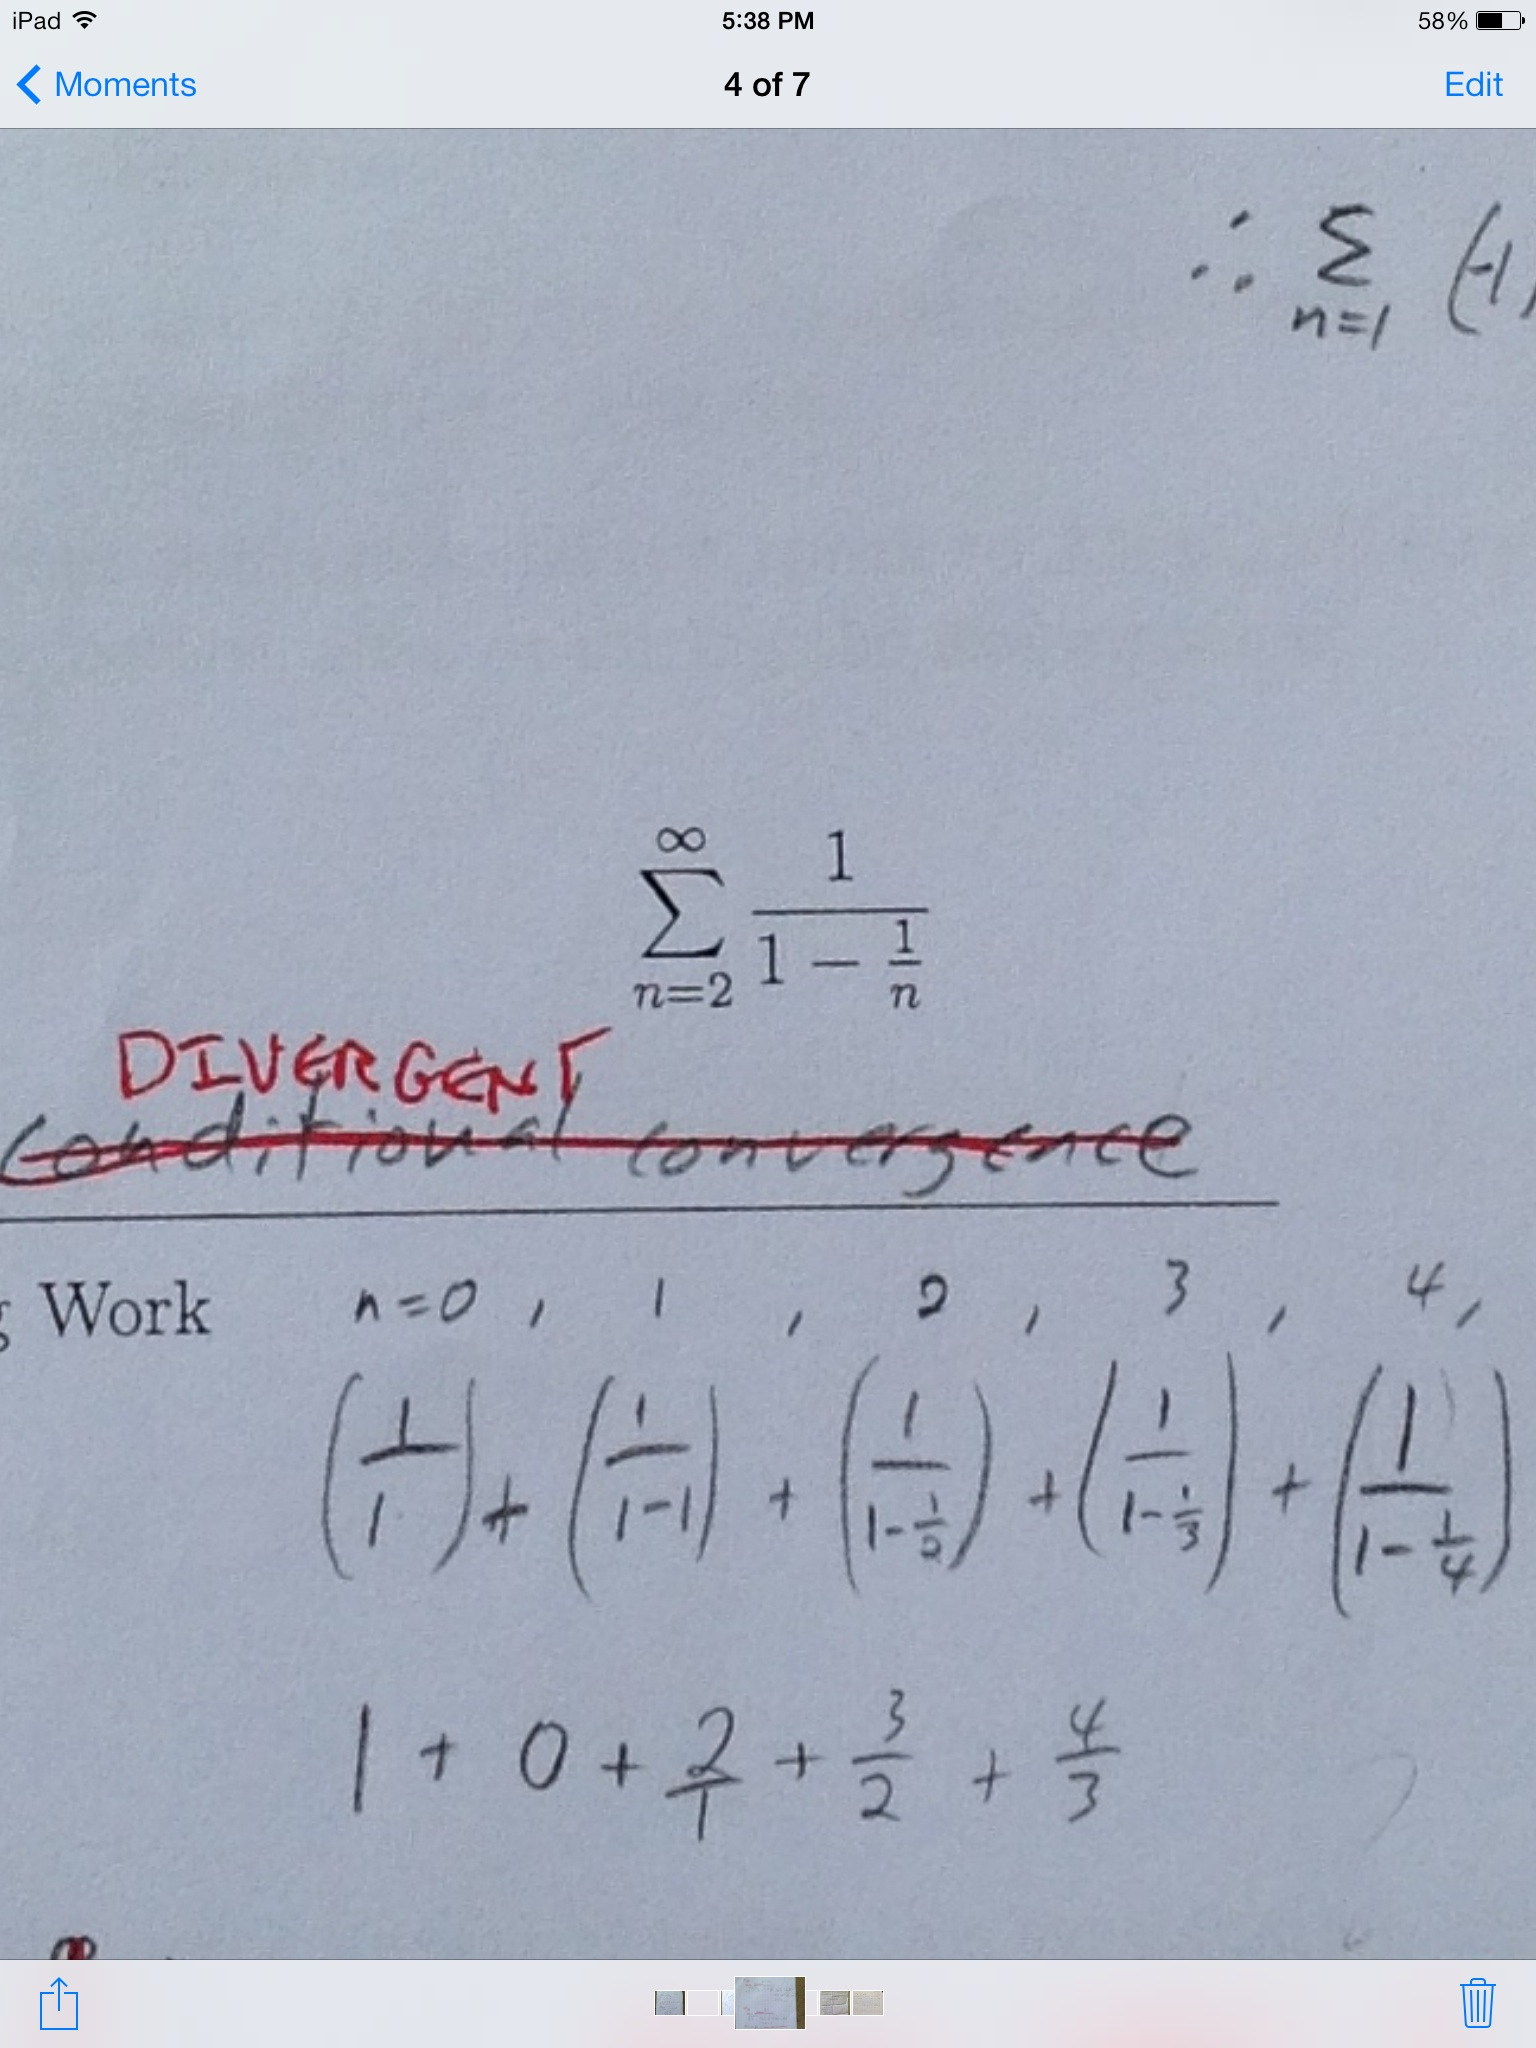 iPad 5:38 PM 58%
Moments 4 of 7 Edit
∴ Σ (-1)
n=1
∞
∑ 1
n=2 1 − 1/n
DIVERGENT
conditional convergence
g Work n=0 , 1 , 2 , 3 , 4 ,
(1/1) + (1/(1-1)) + (1/(1-1/2)) + (1/(1-1/3)) + (1/(1-1/4))
1 + 0 + 2/1 + 3/2 + 4/3